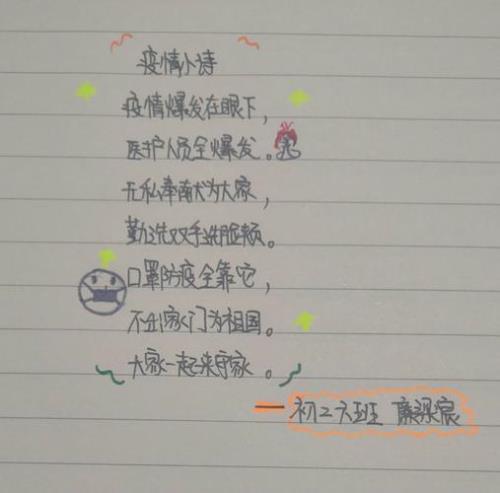 疫情小诗
疫情爆发在眼下，
医护人员全爆发。
无私奉献为大家，
勤洗双手洗脸颊。
口罩防疫全靠它，
不出家门为祖国。
大家一起来守家。
— 初二六班